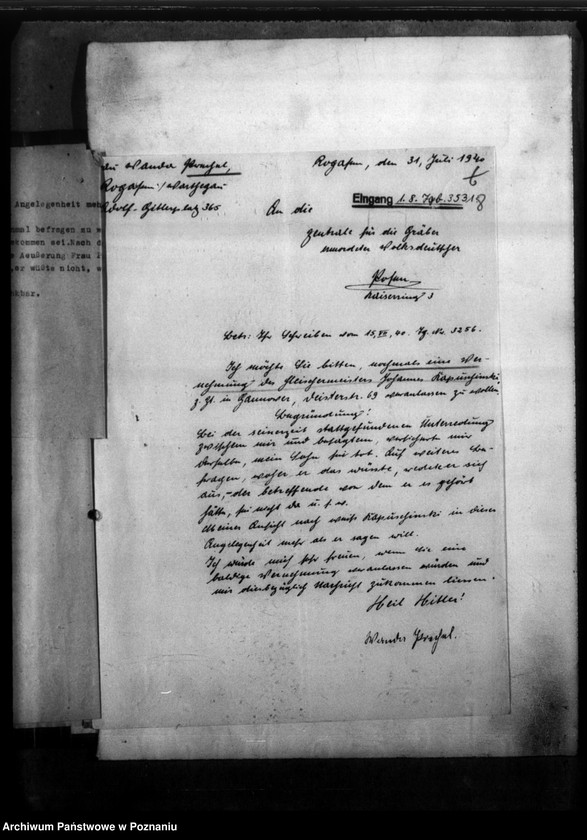 Angelegenheit meh
nmal befragen zu w
ekommen sei. Nach d
e Aeußerung Frau P
, er wüßte nicht, w
nkbar.
au Wanda Prechel,
Rogasen/Warthegau
Adolf-Hitlerplatz 365
Rogasen, den 31. Juli 1940
Eingang 1. 8. Tgb. 3531
An die
Zentrale für die Gräber
ermordeter Volksdeutscher
Posen
Kaiserring 3
Betr.: Ihr Schreiben vom 15.VII.40. Tg. Nr. 3256.
Ich möchte Sie bitten, nochmals eine Ver-
nehmung des Fleischermeisters Johannes Kapuschinski
z. Zt. in Hannover, Deisterstr. 69 veranlassen zu wollen.
Begründung:
Bei der seinerzeit stattgefundenen Unterredung
zwischen mir und besagtem, versichert mir
derselbe, mein Sohn sei tot. Auf weiteres Be-
fragen, woher er das wüsste, redete er sich
aus, - der betreffende von dem er es gehört
hätte, sei nicht da u. s. w.
Meiner Ansicht nach weiß Kapuschinski in dieser
Angelegenheit mehr als er sagen will.
Ich würde mich sehr freuen, wenn Sie eine
baldige Vernehmung veranlassen würden und
mir diesbezüglich Nachricht zukommen liessen.
Heil Hitler!
Wanda Prechel.
Archiwum Państwowe w Poznaniu